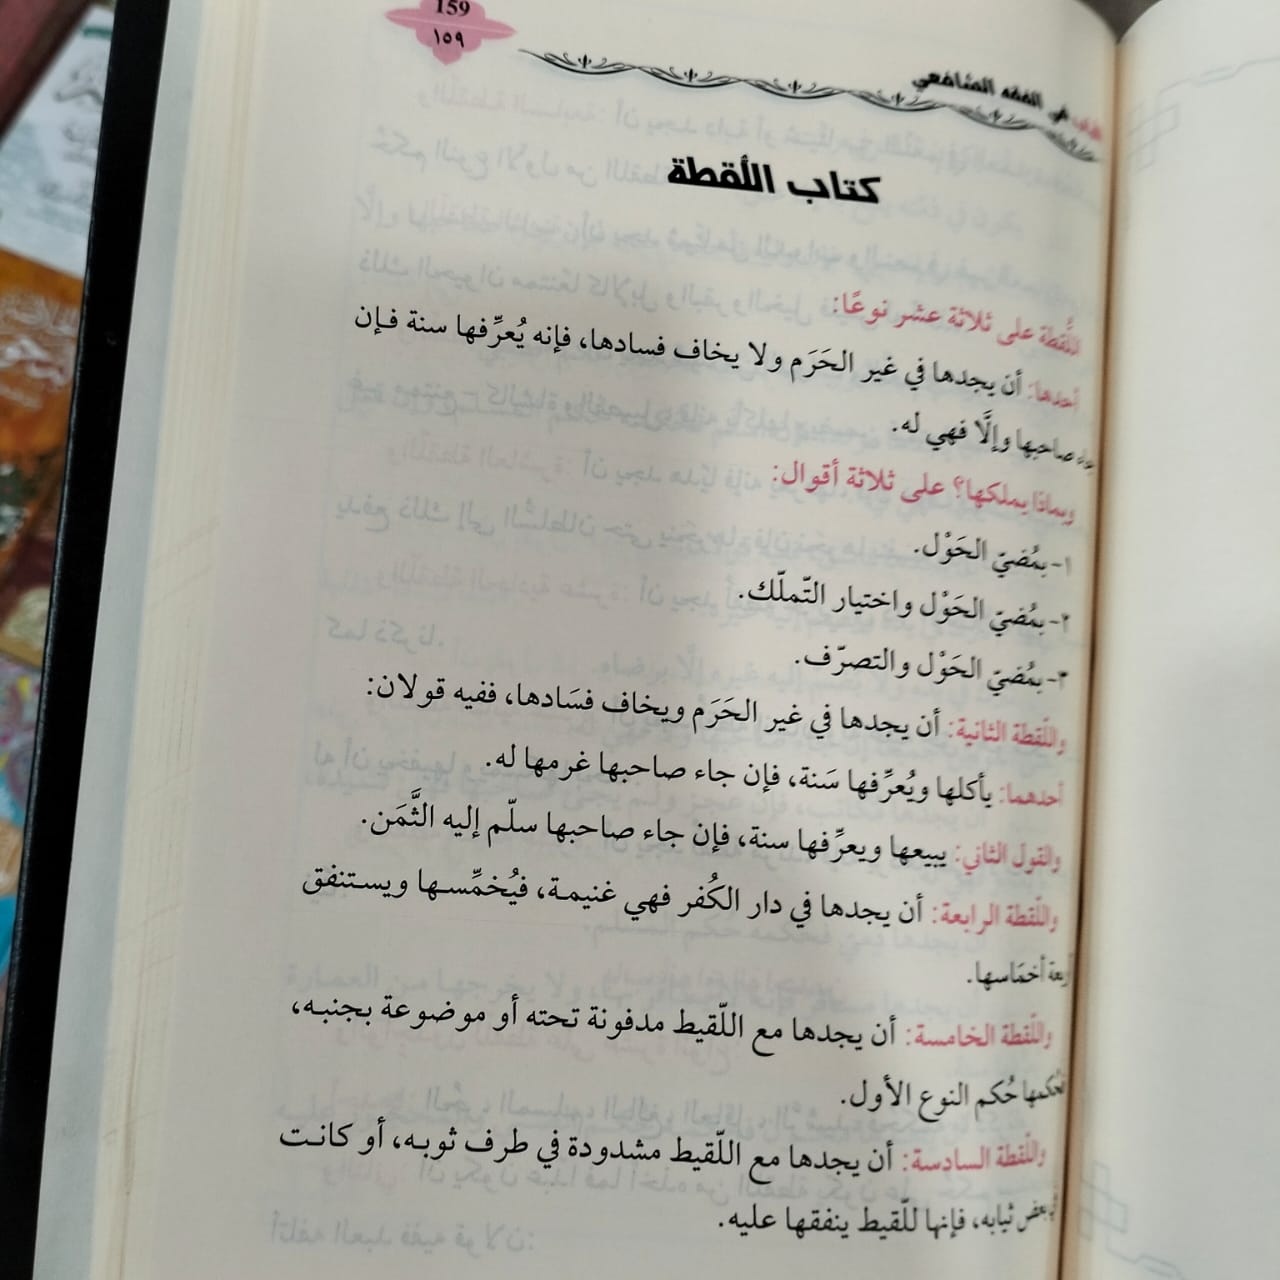 159
١٥٩
في الفقه الشافعي
كتاب اللُّقطة
اللُّقطة على ثلاثة عشر نوعًا:
أحدها: أن يجدها في غير الحَرَم ولا يخاف فسادها، فإنه يُعرِّفها سنة فإن
صاحبها وإلَّا فهي له.
وبماذا يملكها؟ على ثلاثة أقوال:
١- بمُضيّ الحَوْل.
٢- بمُضيّ الحَوْل واختيار التّملّك.
٣- بمُضيّ الحَوْل والتصرّف.
واللّقطة الثانية: أن يجدها في غير الحَرَم ويخاف فسَادها، ففيه قولان:
أحدهما: يأكلها ويُعرِّفها سَنة، فإن جاء صاحبها غرمها له.
والقول الثاني: يبيعها ويعرِّفها سنة، فإن جاء صاحبها سلّم إليه الثَّمَن.
واللّقطة الرابعة: أن يجدها في دار الكُفر فهي غنيمة، فيُخمِّسها ويستنفق
أربعة أخمَاسها.
واللّقطة الخامسة: أن يجدها مع اللّقيط مدفونة تحته أو موضوعة بجنبه،
فحُكمها حُكم النوع الأول.
واللّقطة السادسة: أن يجدها مع اللّقيط مشدودة في طرف ثوبه، أو كانت
في بعض ثيابه، فإنها للّقيط ينفقها عليه.